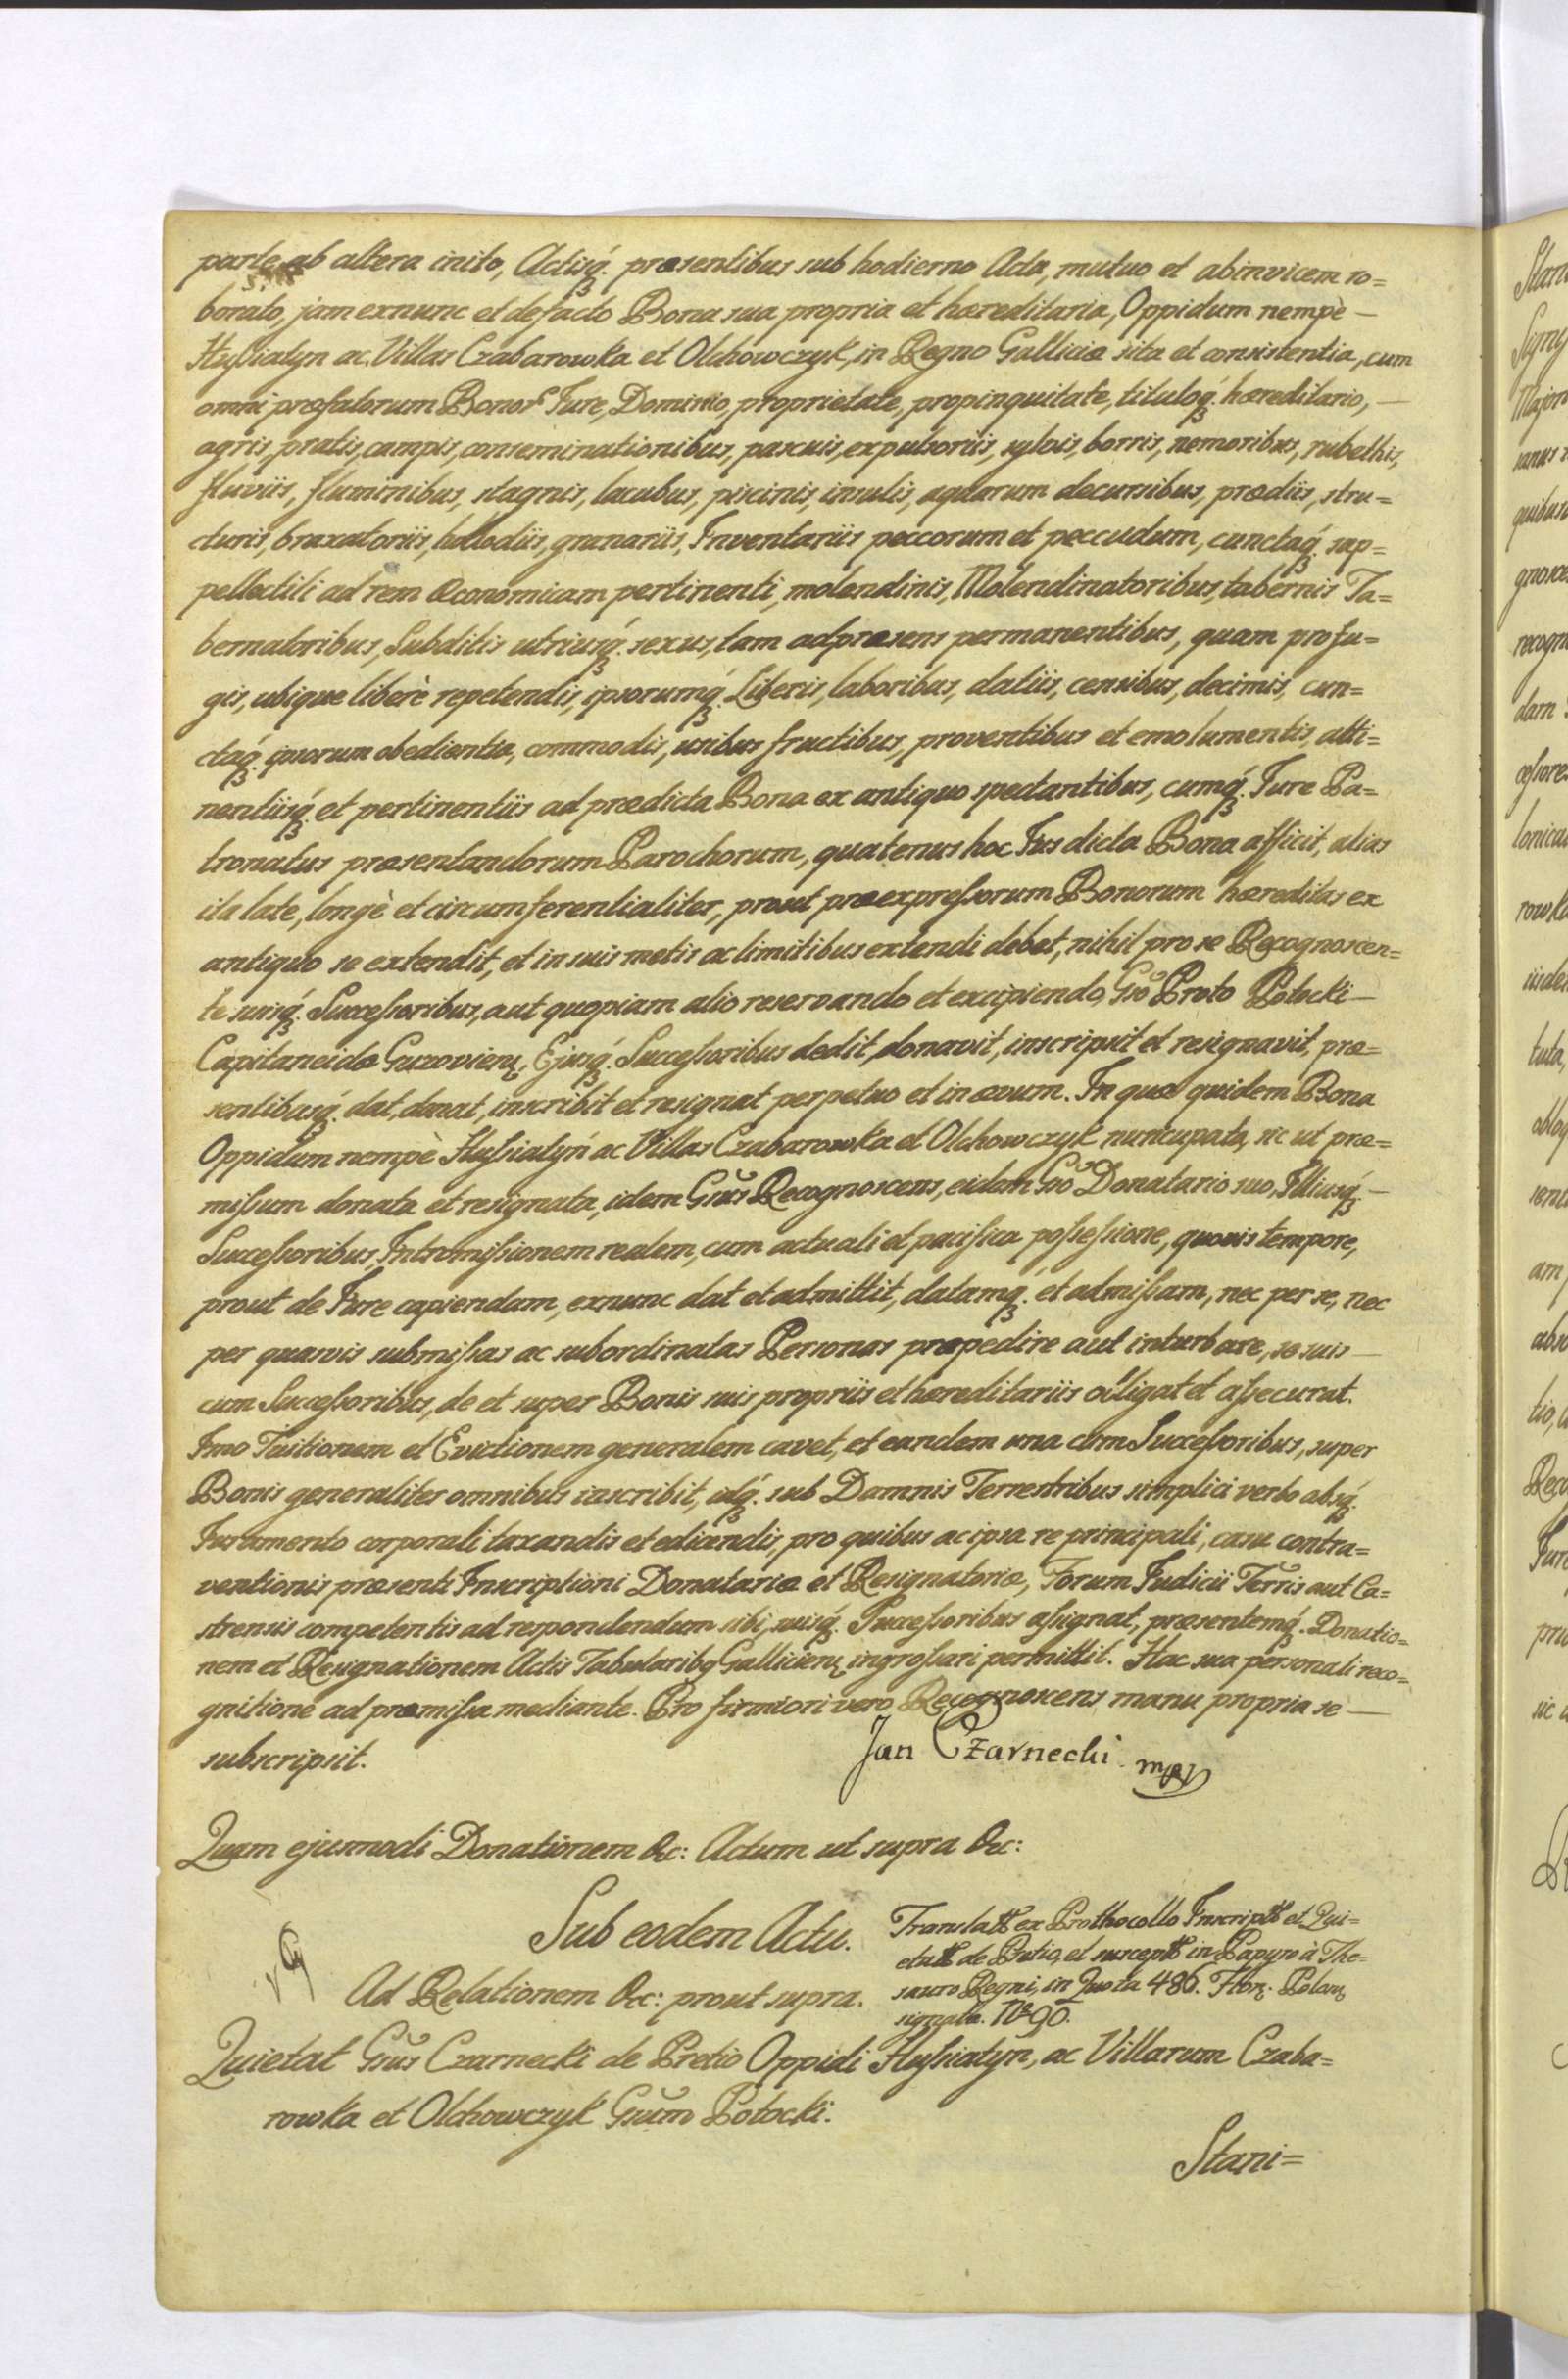 parte ab altera inito, Actisq́ꝫ. præsentibus sub hodierno Acta, mutuo et abinvicem ro=
borato, jam exnunc et defacto Bona sua propria et hæreditaria, Oppidum nempè —
Hußiatyn ac Villas Czabarowka et Olchowczyk, in Regno Galliciæ sita et consistentia, cum
omni præfatorum Bonor̃ Jure, Dominio, proprietate, propinquitate, tituloq́ꝫ. hæreditario, —
agris, pratis, campis, conseminationibus, pascuis, expulsoriis, sylvis, borris, nemoribus, rubethis,
fluviis, fluminibus, stagnis, lacubus, piscinis, insulis, aquarum decursibus, prædiis, stru=
cturis, braxatoriis, hollodiis, granariis, Inventariis peccorum et peccudum, cunctaq́ꝫ. sup=
pellectili ad rem œconomicam pertinenti, molendinis, Molendinatoribus, tabernis Ta=
bernatoribus, Subditis utriusq́ꝫ. sexus, tam adpræsens permanentibus, quam profu=
gis, ubique liberè repetendis, ipsorumq́ꝫ. Liberis, laboribus, datiis, censibus, decimis, cun=
ctaq́ꝫ. ipsorum obedientia, commodis, usibus fructibus, proventibus et emolumentis, atti=
nentiisq́ꝫ. et pertinentiis ad prædicta Bona ex antiquo spectantibus, cumq́ꝫ. Jure Pa=
tronatus præsentandorum Parochorum, quatenus hoc Jus dicta Bona afficit, alias
ita late, longè et circumferentialiter, prout præexpreßorum Bonorum hæreditas ex
antiquo se extendit, et in suis metis ac limitibus extendi debet, nihil pro se Recognoscen=
te suisq́ꝫ. Succeßoribus, aut quopiam alio reservando et excipiendo, Gso Proto Potocki —
Capitaneidæ Guzoviens, Ejusq́ꝫ. Succeßoribus dedit, donavit, inscripsit et resignavit, præ=
sentibusq́ꝫ. dat, donat, inscribit et resignat perpetuo et in ævum. In quæ quidem Bona
Oppidum nempè Hußiatyń ac Villas Czabarowka et Olchowczyk nuncupata, sic ut præ=
mißum donata et resignata, idem Gsus Recognoscens, eidem Gso Donatario suo, Illiusq́ꝫ. —
Succeßoribus, Intromißionem realem, cum actuali et pacifica poßeßione, quovis tempore,
prout de Jure capiendam, exnunc dat et admittit, datamq́ꝫ. et admißam, nec per se, nec
per quasvis submißas ac subordinatas Personas præpedire aut inturbare, se suis —
cum Succeßoribus, de et super Bonis suis propriis et hæreditariis obligat et aßecurat.
Imo Tuitionem et Evictionem generalem cavet, et eandem una cum Succeßoribus, super
Bonis generaliter omnibus inscribit, idq́ꝫ. sub Damnis Terrestribus simplici verbo absq́ꝫ.
Juramento corporali taxandis et edicendis, pro quibus ac ipsa re principali, casu contra=
ventionis præsenti Inscriptioni Donatariæ et Resignatoriæ, Forum Judicii Terris aut Ca=
strensis competentis ad respondendum sibi, suisq́ꝫ. Succeßoribus aßignat, præsentemq́ꝫ. Donatio=
nem et Resignationem Actis Tabularibꝫ Galliciens ingroßari permittit. Hac sua personali reco=
gnitione ad præmißa mediante. Pro firmiori vero Recognoscens manu propria se —
subscripsit.
Jan Czarnecki mpp
Quam ejusmodi Donationem &c: Actum ut supra &c:
Sub eodem Actu.
Ad Relationem &c: prout supra.
Translatt ex Prothocollo Inscriptt et Qui=
etatt de Pretio, et susceptt in Papyro à The=
sauro Regni, in Quota 486. Flor. Polon.
signata. No 90.
Quietat Gsus Czarnecki de Pretio Oppidi Hußiatyn, ac Villarum Czaba=
rowka et Olchowczyk Gsum Potocki.
Stani=